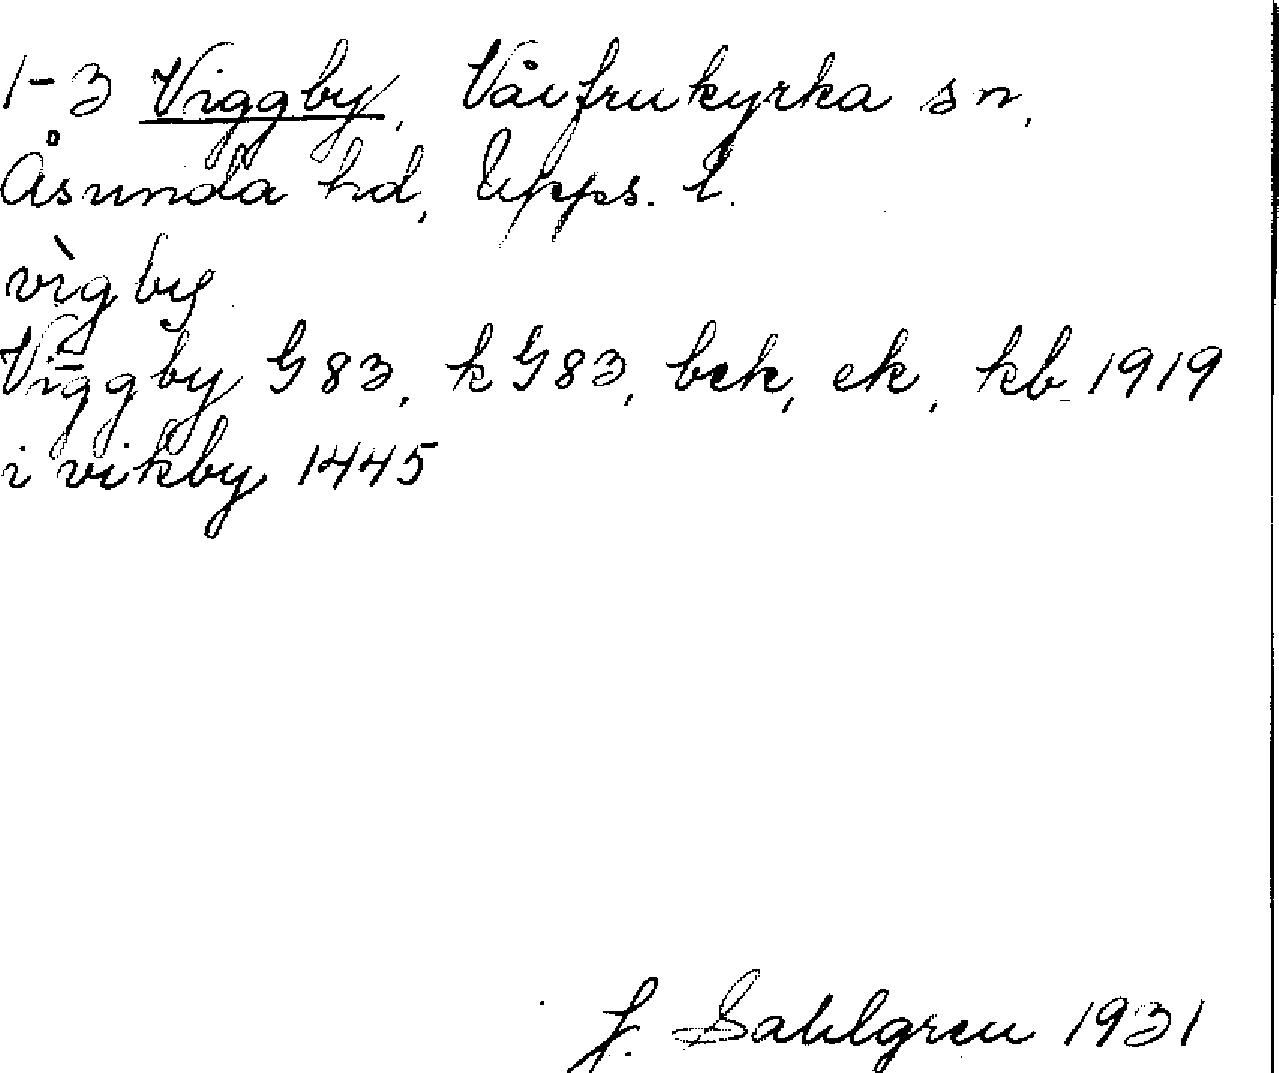 1-3 Viggby, Vårfrukyrka sn,
Åsunda hd, Upps. l.
vìgby
Viggby G83, k G83, bek, ek, kb 1919
i vikby 1445
J. Sahlgren 1931